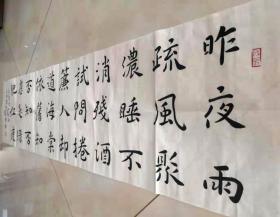 昨夜雨
疏風聚
濃睡不
消殘酒
試問捲
簾人却
道海棠
依舊知
否知否
應是綠
肥紅瘦